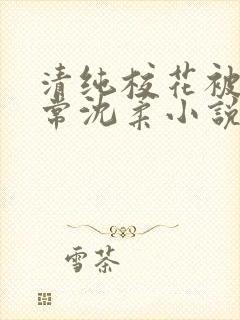 清纯校花被
常沈柔小説
雪茶